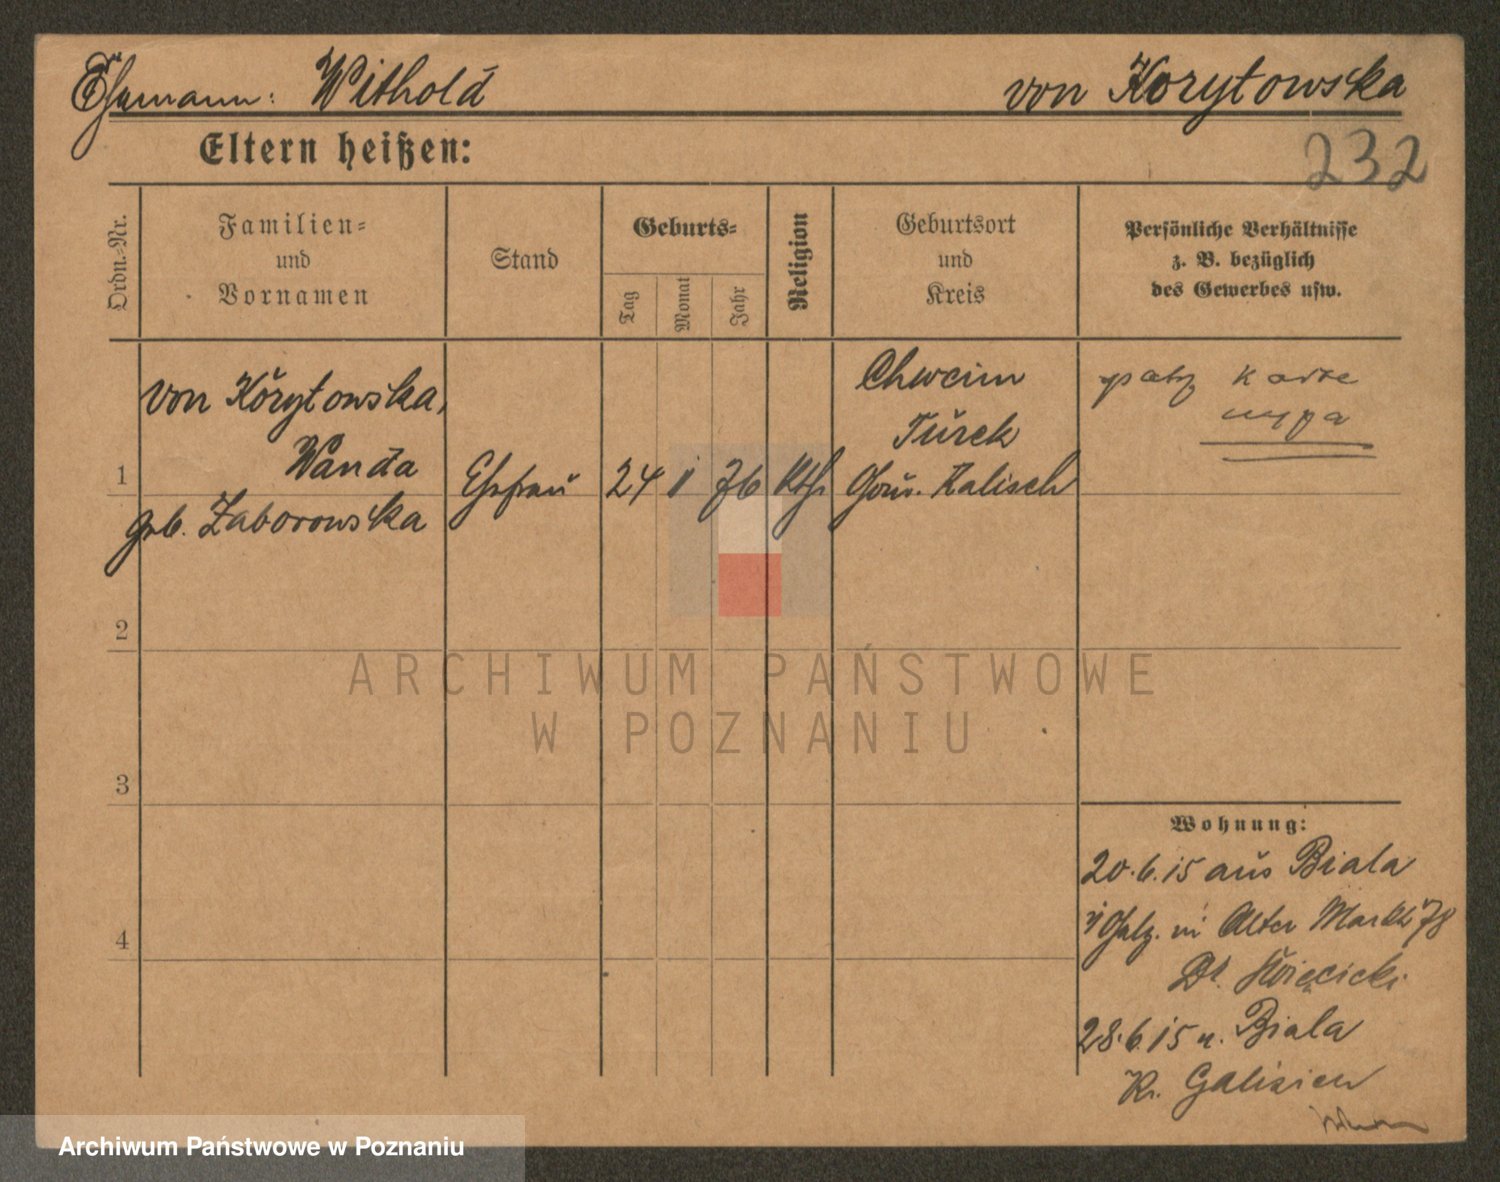 Ehemann: Withold von Korytowska
Eltern heißen:
232
Ordn.-Nr.
Familien-
und
Vornamen
Stand
Geburts-
Tag
Monat
Jahr
Religion
Geburtsort
und
Kreis
Persönliche Verhältnisse
z. B. bezüglich
des Gewerbes usw.
von Korytowska,
Wanda
geb. Zaborowska
1
Ehefrau
24 1 76 Kth
Chwcim
Turek
Gouv. Kalisch
patrz karte
męża
2
3
4
ARCHIWUM PAŃSTWOWE
W POZNANIU
Wohnung:
20.6.15 aus Biala
i/Galz. in Alter Markt 78
Dr. Święcicki
28.6.15 n. Biala
Kr. Galizien
Archiwum Państwowe w Poznaniu